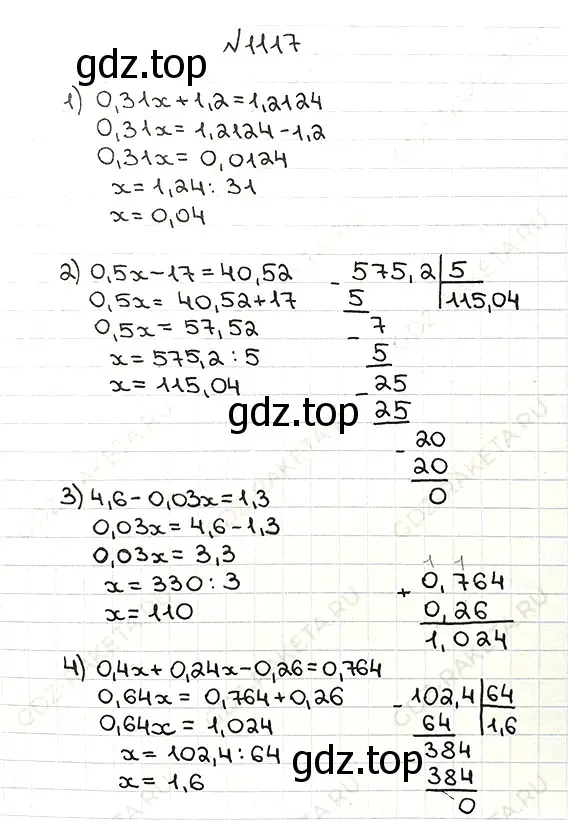 №1117
gdz.top
1) 0,31x+1,2=1,2124
0,31x=1,2124-1,2
0,31x=0,0124
x=1,24:31
x=0,04
2) 0,5x-17=40,52
0,5x=40,52+17
0,5x=57,52
x=575,2:5
x=115,04
- 575,2 | 5
5 | 115,04
- 7
5
- 25
25
- 20
20
0
gdz.top
3) 4,6-0,03x=1,3
0,03x=4,6-1,3
0,03x=3,3
x=330:3
x=110
1 1
+ 0,764
0,26
1,024
4) 0,4x+0,24x-0,26=0,764
0,64x=0,764+0,26
0,64x=1,024
x=102,4:64
x=1,6
- 102,4 | 64
64 | 1,6
- 384
384
0
gdz.top
GDZ-RAKETA.RU